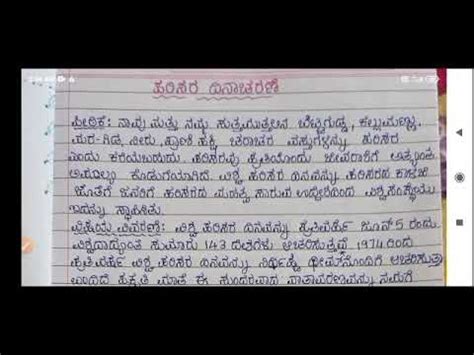 ಪರಿಸರ ದಿನಾಚರಣೆ
ಪೀಠಿಕೆ: ನಾವು ಮತ್ತು ನಮ್ಮ ಸುತ್ತಮುತ್ತಲಿನ ಬೆಟ್ಟಗುಡ್ಡ, ಕಲ್ಲುಮಣ್ಣು,
ಮರ-ಗಿಡ, ನೀರು, ಪ್ರಾಣಿ ಪಕ್ಷಿ ಚರಾಚರ ವಸ್ತುಗಳನ್ನು ಪರಿಸರ
ಎಂದು ಕರೆಯಬಹುದು. ಪರಿಸರವು ಪ್ರತಿಯೊಂದು ಜೀವರಾಶಿಗೆ ಅತ್ಯಂತ
ಅಮೂಲ್ಯ ಕೊಡುಗೆಯಾಗಿದೆ. ವಿಶ್ವ ಪರಿಸರ ದಿನವನ್ನು, ಪರಿಸರದ ಕಾಳಜಿ
ಜೊತೆಗೆ ಜನರಿಗೆ ಪರಿಸರದ ಮಹತ್ವ ಸಾರುವ ಉದ್ದೇಶದಿಂದ ವಿಶ್ವಸಂಸ್ಥೆಯು
ಇದನ್ನು ಸ್ಥಾಪಿಸಿತು.
ವಿಷಯ ವಿವರಣೆ: ವಿಶ್ವ ಪರಿಸರ ದಿನವನ್ನು ಪ್ರತಿವರ್ಷ ಜೂನ್ 5 ರಂದು
ವಿಶ್ವದಾದ್ಯಂತ ಸುಮಾರು 143 ದೇಶಗಳು ಆಚರಿಸುತ್ತವೆ 1974 ರಿಂದ
ಪ್ರತಿವರ್ಷ ವಿಶ್ವ ಪರಿಸರ ದಿನವನ್ನು ನಿರ್ದಿಷ್ಟ ಥೀಮ್‌ನೊಂದಿಗೆ ಆಚರಿಸುತ್ತಾ
ಪ್ರಕೃತಿ ಮಾತೆ ಈ ಸುಂದರವಾದ ವಾತಾವರಣವನ್ನು ನಮಗೆ